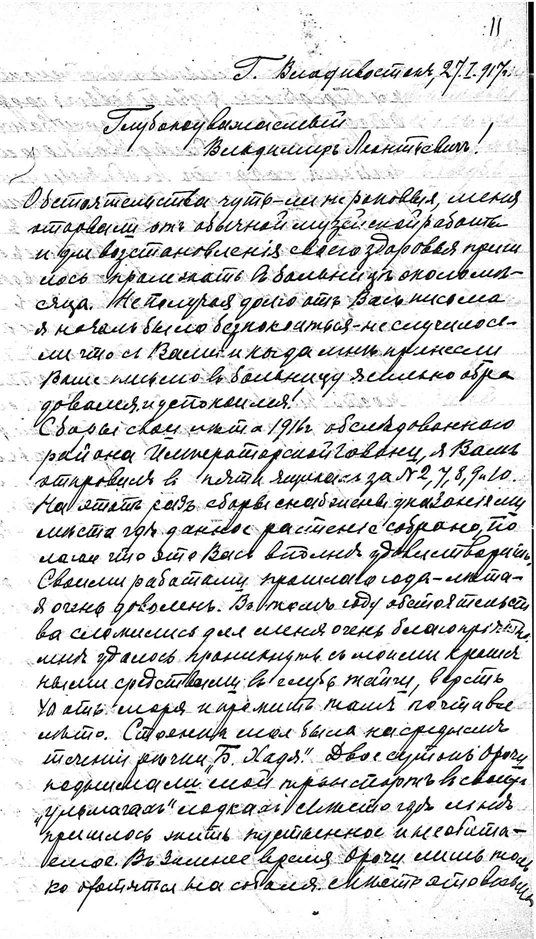 11
Г. Владивостокъ, 27/I. 917г.
Глубокоуважаемый
Владимиръ Леонтьевичъ!
Обстоятельства чуть-ли не роковыя, меня
оторвали отъ обычной музейской работы
и для возстановленія своего здоровья приш
лось пролежать въ больницѣ около мѣ-
сяца. Не получая долго отъ Васъ письма
я началъ было безпокоиться - не случилось-
ли что съ Вами и когда мнѣ принесли
Ваше письмо въ больницу я сильно обра
довался и успокоился!
Сборы свои лѣта 1916г обслѣдованнаго
района Императорской Гавани, я Вамъ
отправилъ въ пяти ящикахъ за № 2, 7, 8, 9 и 10.
На этотъ разъ сборы снабжены указаніями
мѣста гдѣ данное растеніе собрано, по
лагаю что это Васъ вполнѣ удовлетворитъ.
Своими работами прошлаго года - лѣта -
я очень доволенъ. Въ томъ году обстоятельст
ва сложились для меня очень благопріятно
мнѣ удалось проникнуть съ моими
средствами въ глубь тайги, верстъ
40 отъ моря и прожить тамъ почти все
лѣто. Стоянка моя была на среднемъ
теченіи рѣчки „Б. Хадя". Двое сутокъ Орочи
подымали мой транспортъ въ своихъ
„ульмагахъ" лодкахъ. Мѣсто гдѣ мнѣ
пришлось жить пустынное и необита-
емое. Въ зимнее время Орочи лишь толь
ко охотятся на соболя. Мѣсто это